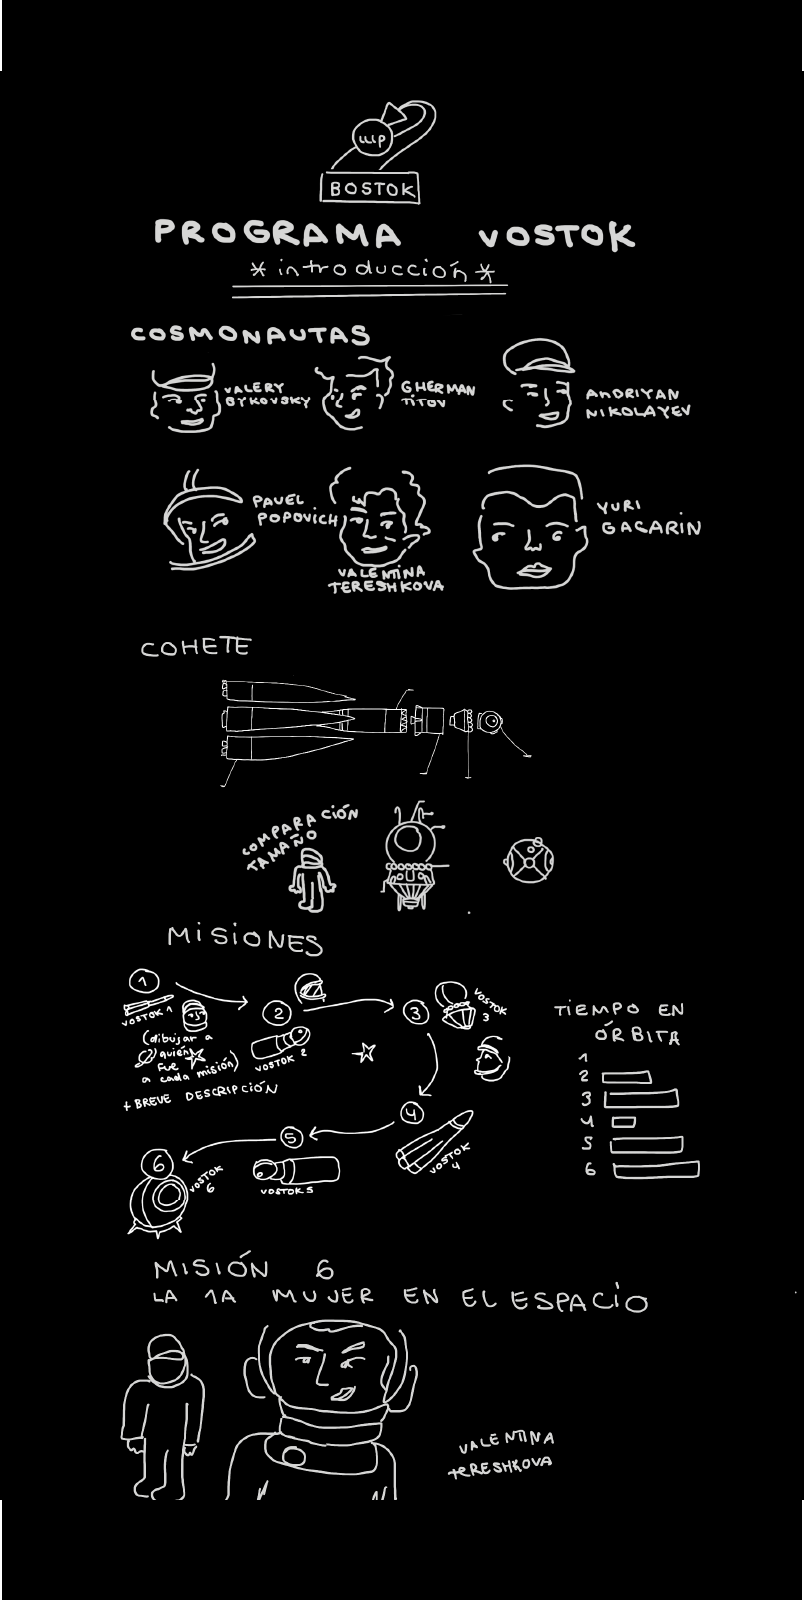 шр
BOSTOK
PROGRAMA VOSTOK
* introducción *
COSMONAUTAS
VALERY
BYKOVSKY
GHERMAN
TITOV
ANDRIYAN
NIKOLAYEV
PAVEL
POPOVICH
VALENTINA
TERESHKOVA
YURI
GAGARIN
COHETE
COMPARACIÓN
TAMAÑO
MISIONES
1
VOSTOK 1
(dibujar a
quién
fue
a cada misión)
+ BREVE DESCRIPCIÓN
2
VOSTOK 2
3
VOSTOK
3
4
VOSTOK
4
5
VOSTOK 5
6
VOSTOK
6
TIEMPO EN
ÓRBITA
1
2
3
4
5
6
MISIÓN 6
LA 1A MUJER EN EL ESPACIO
VALENTINA
tERESHKOVA